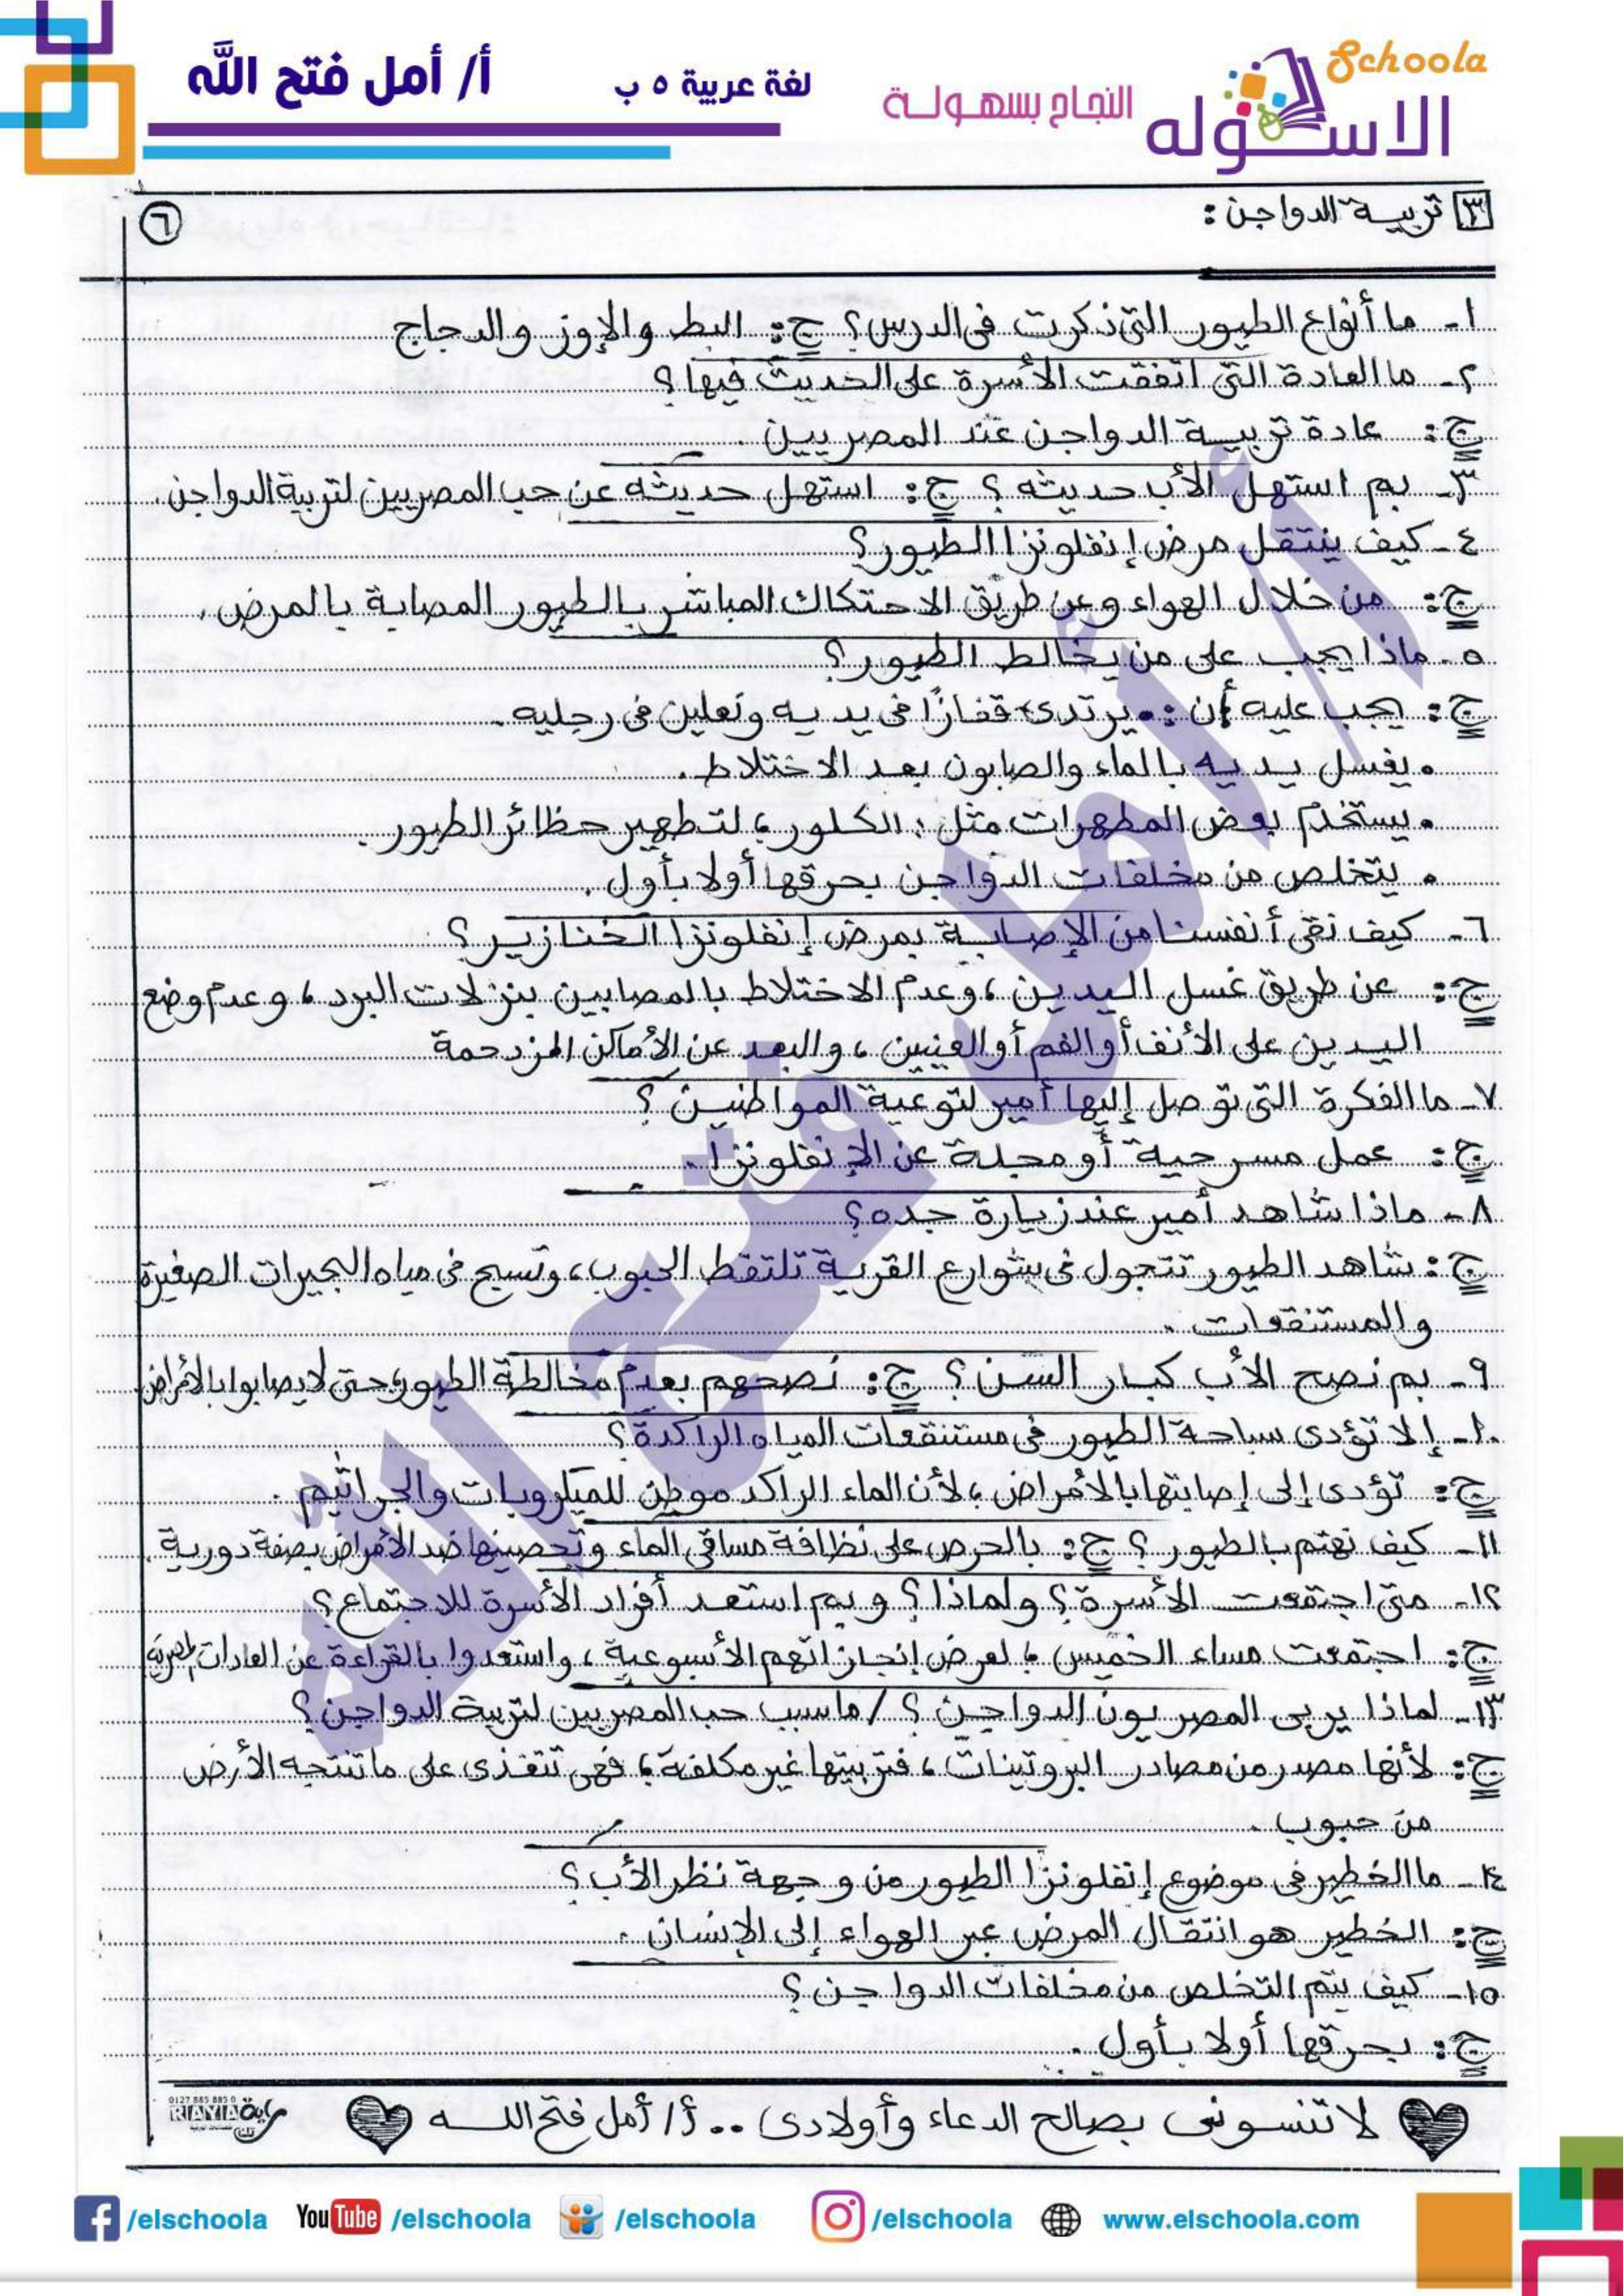 Schoola
الاسكوله
النجاح بسهولة
لغة عربية ٥ ب
أ/ أمل فتح الله
٣ تربية الدواجن :
٦
١- ما أنواع الطيور التى ذكرت فى الدرس؟ ج: البط والإوز والدجاج
٢- ما العادة التى اتفقت الأسرة على الحديث فيها؟
ج: عادة تربية الدواجن عند المصريين .
٣- بم استهل الأب حديثه ؟ ج: استهل حديثه عن حب المصريين لتربية الدواجن.
٤- كيف ينتقل مرض إنفلونزا الطيور؟
ج: من خلال الهواء وعن طريق الاحتكاك المباشر بالطيور المصابة بالمرض.
٥- ماذا يجب على من يخالط الطيور؟
ج: يجب عليه أن : • يرتدى قفازًا فى يديه ونعلين فى رجليه.
• يغسل يديه بالماء والصابون بعد الاختلاط.
• يستخدم بعض المطهرات مثل : الكلور ؛ لتطهير حظائر الطيور.
• يتخلص من مخلفات الدواجن بحرقها أولا بأول .
٦- كيف نقى أنفسنا من الإصابة بمرض إنفلونزا الخنازير؟
ج: عن طريق غسل اليدين ، وعدم الاختلاط بالمصابين بنزلات البرد ، وعدم وضع
اليدين على الأنف أو الفم أو العينين ، والبعد عن الأماكن المزدحمة
٧- ما الفكرة التى توصل إليها أمير لتوعية المواطنين ؟
ج: عمل مسرحية أو مجلة عن الإنفلونزا.
٨- ماذا شاهد أمير عند زيارة جده؟
ج: شاهد الطيور تتجول فى شوارع القرية تلتقط الحبوب، وتسبح فى مياه البحيرات الصغيرة
والمستنقعات .
٩- بم نصح الأب كبار السن ؟ ج: نصحهم بعدم مخالطة الطيور؛ حتى لا يصابوا بالأمراض
١٠- إلا تؤدى سباحة الطيور فى مستنقعات المياه الراكدة؟
ج: تؤدى إلى إصابتها بالأمراض ؛ لأن الماء الراكد موطن للميكروبات والجراثيم .
١١- كيف نهتم بالطيور ؟ ج: بالحرص على نظافة مساقى الماء وتحصينها ضد الأمراض بصفة دورية.
١٢- متى اجتمعت الأسرة؟ ولماذا؟ وبم استعد أفراد الأسرة للاجتماع؟
ج: اجتمعت مساء الخميس ؛ لعرض إنجازاتهم الأسبوعية ، واستعدوا بالقراءة عن العادات المصرية
١٣- لماذا يربى المصريون الدواجن ؟ / ما سبب حب المصريين لتربية الدواجن؟
ج: لأنها مصدر من مصادر البروتينات ، فتربيتها غير مكلفة ؛ فهى تتغذى على ما تنتجه الأرض
من حبوب .
١٤- ما الخطير فى موضوع إنفلونزا الطيور من وجهة نظر الأب؟
ج: الخطير هو انتقال المرض عبر الهواء إلى الإنسان .
١٥- كيف يتم التخلص من مخلفات الدواجن؟
ج: بحرقها أولا بأول .
لا تنسونى بصالح الدعاء وأولادى .. أ/ أمل فتح الله
0127 885 885 0
RIAYIA
/elschoola YouTube /elschoola /elschoola /elschoola www.elschoola.com